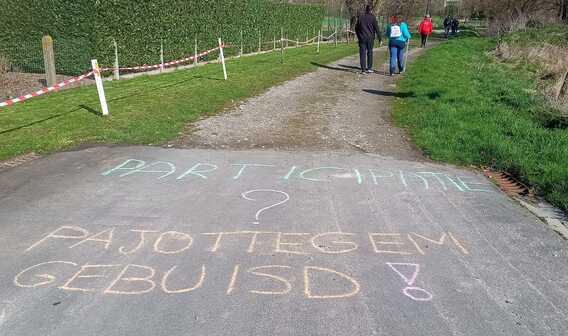 PARTICIPATIE
?
PAJOTTEGEM
GEBUISD !